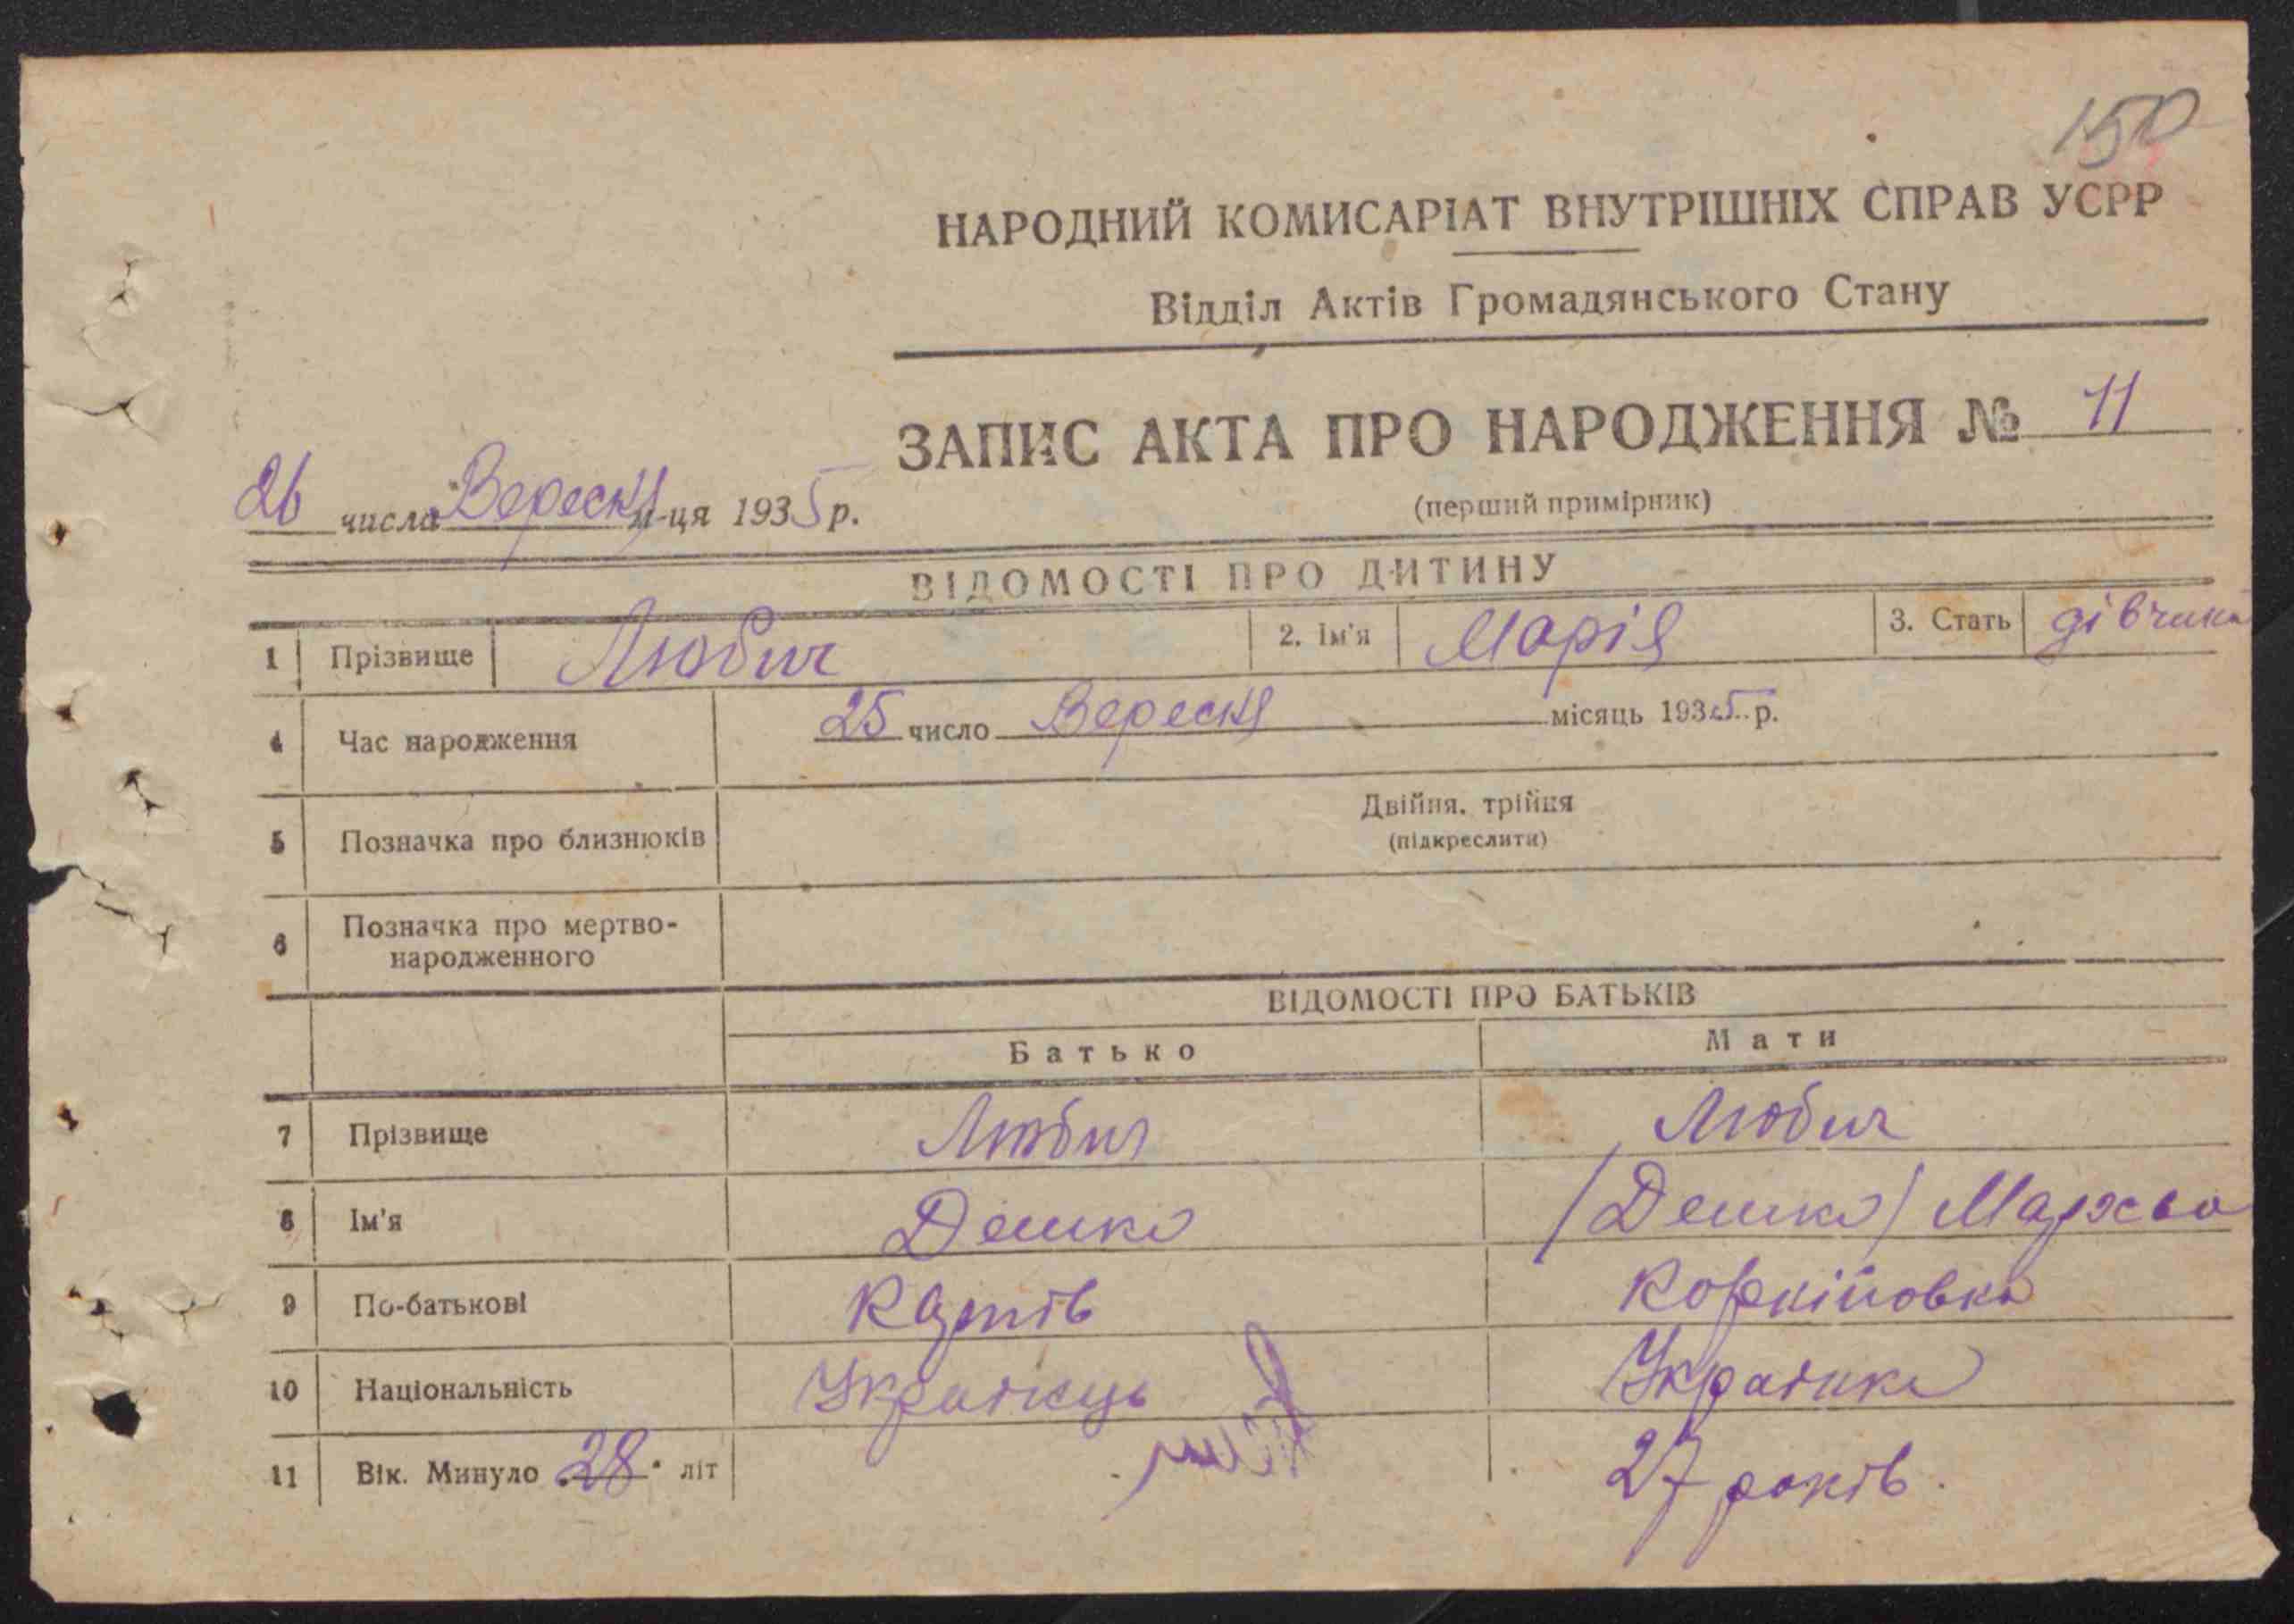 150
НАРОДНИЙ КОМИСАРІАТ ВНУТРІШНІХ СПРАВ УСРР
Відділ Актів Громадянського Стану
ЗАПИС АКТА ПРО НАРОДЖЕННЯ № 11
26 числа Вересня м-ця 1935 р.
(перший примірник)
ВІДОМОСТІ ПРО ДИТИНУ
1 Прізвище Любич 2. Ім'я Марія 3. Стать дівчина
4 Час народження 25 число Вересня місяць 1935 р.
5 Позначка про близнюків Двійня, трійня
(підкреслити)
6 Позначка про мертво-
народженного
ВІДОМОСТІ ПРО БАТЬКІВ
Батько Мати
7 Прізвище Любич Любич
8 Ім'я Демко (Демко)
9 По-батькові
10 Національність Українець Українка
11 Вік. Минуло 28 літ 27 років.